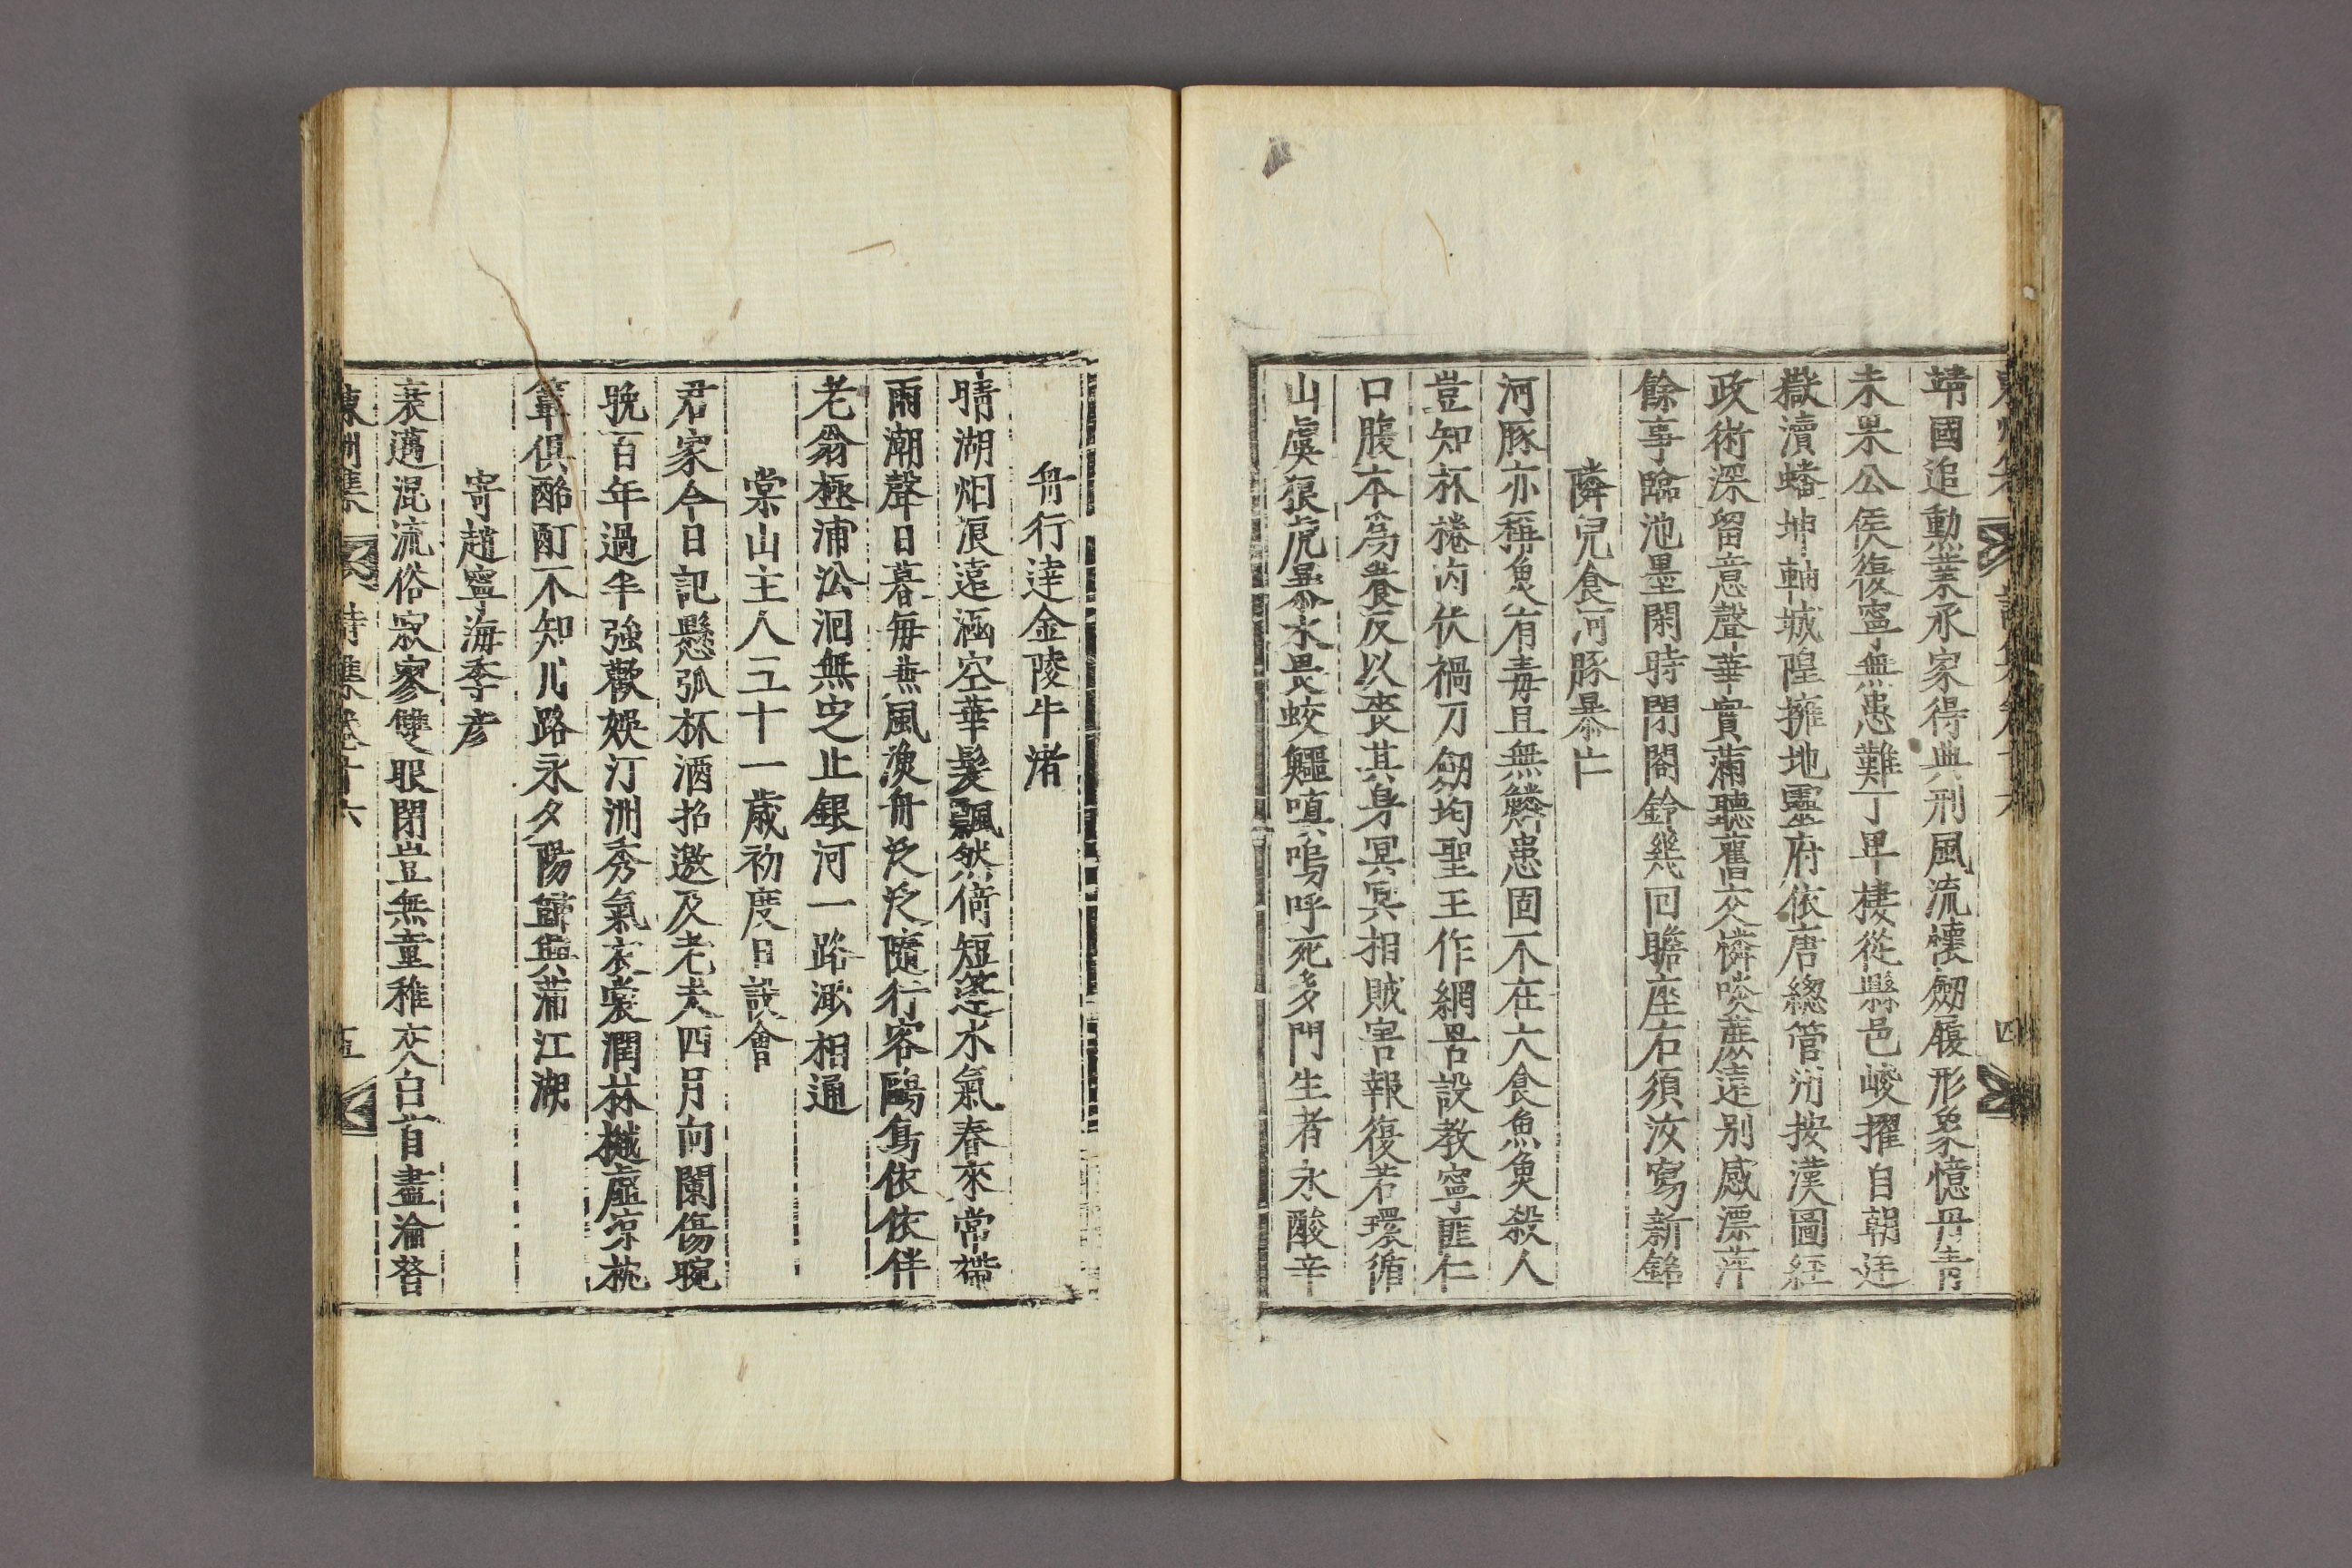 靖國追勳業承家得典刑風流懷劒履形象憶丹青
未果公侯復寧無患難丁卑棲從縣邑峻擢自朝廷
嶽瀆蟠坤軸城隍擁地靈府依唐緫管州按漢圖經
政術深留意聲華實滿聽舊交憐啖蔗遠別感漂萍
餘事臨池墨閑時閉閤鈴幾回瞻座右須汝寫新銘
隣兒食河豚暴亡
河豚亦稱魚有毒且無鱗患固不在大食魚魚殺人
豈知杯棬內伏禍刀劒均聖王作網罟設教寧匪仁
口腹本爲養反以喪其身冥冥相賊害報復若環循
山虞狼虎暴水畏蛟鱷嗔嗚呼死多門生者永酸辛
東洲集 詩集卷十六 四
舟行達金陵牛渚
晴湖烟浪遠涵空華髮飄然倚短篷水氣春來常帶
雨潮聲日暮每兼風漁舟泛泛隨行客鷗鳥依依伴
老翁極浦沿洄無定止銀河一路渺相通
棠山主人五十一歲初度日設會
君家今日記懸弧杯酒招邀及老夫四月向闌傷晼
晚百年過半強歡娛汀洲秀氣衣裳潤林樾虛涼枕
簟俱酩酊不知几路永夕陽歸與蒲江湖
寄趙寧海季彦
衰邁混流俗寂寥雙眼閉豈無童稚交白首盡淪替
東洲集 詩集卷十六 五